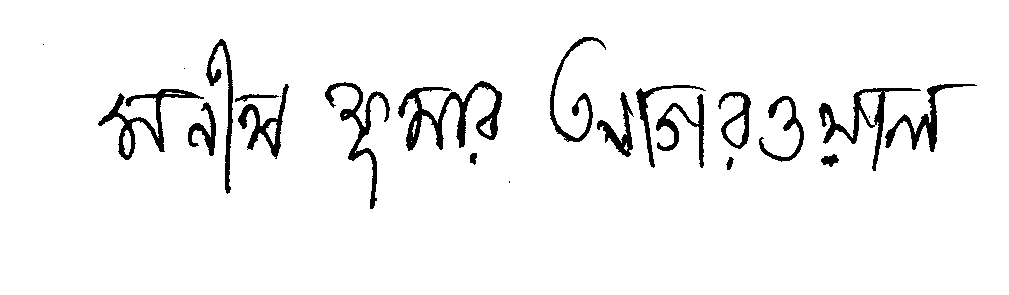 মনীষ কুমার আগরওয়াল